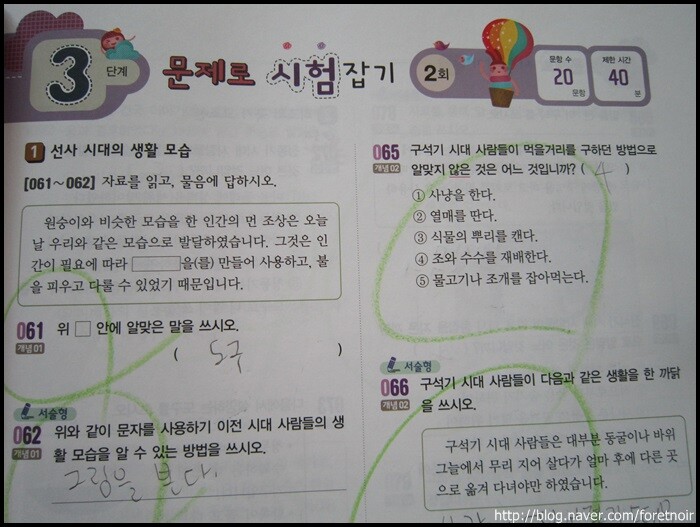 3 단계
문제로 시험잡기
2회
문항 수
20
문항
제한 시간
40
분
1 선사 시대의 생활 모습
[061~062] 자료를 읽고, 물음에 답하시오.
원숭이와 비슷한 모습을 한 인간의 먼 조상은 오늘
날 우리와 같은 모습으로 발달하였습니다. 그것은 인
간이 필요에 따라 을(를) 만들어 사용하고, 불
을 피우고 다룰 수 있었기 때문입니다.
061 위 □ 안에 알맞은 말을 쓰시오.
개념 01
( 도구 )
서술형
062 위와 같이 문자를 사용하기 이전 시대 사람들의 생
개념 01
활 모습을 알 수 있는 방법을 쓰시오.
그림을 본다.
065 구석기 시대 사람들이 먹을거리를 구하던 방법으로
개념 02
알맞지 않은 것은 어느 것입니까? ( 4 )
① 사냥을 한다.
② 열매를 딴다.
③ 식물의 뿌리를 캔다.
④ 조와 수수를 재배한다.
⑤ 물고기나 조개를 잡아먹는다.
서술형
066 구석기 시대 사람들이 다음과 같은 생활을 한 까닭
개념 02
을 쓰시오.
구석기 시대 사람들은 대부분 동굴이나 바위
그늘에서 무리 지어 살다가 얼마 후에 다른 곳
으로 옮겨 다녀야만 하였습니다.
http://blog.naver.com/foretnoir